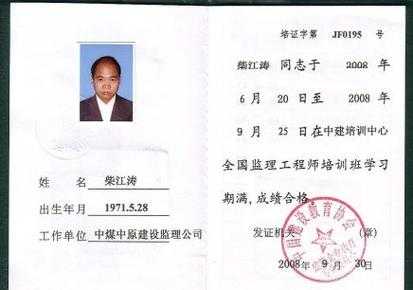 姓 名 柴江涛
出生年月 1971.5.28
工作单位 中煤中原建设监理公司
培证字第 JF0195 号
柴江涛 同志于 2008 年
6 月 20 日至 2008 年
9 月 25 日在中建培训中心
全国监理工程师培训班学习
期满,成绩合格。
发证机关 (章)
2008年 9 月 30日